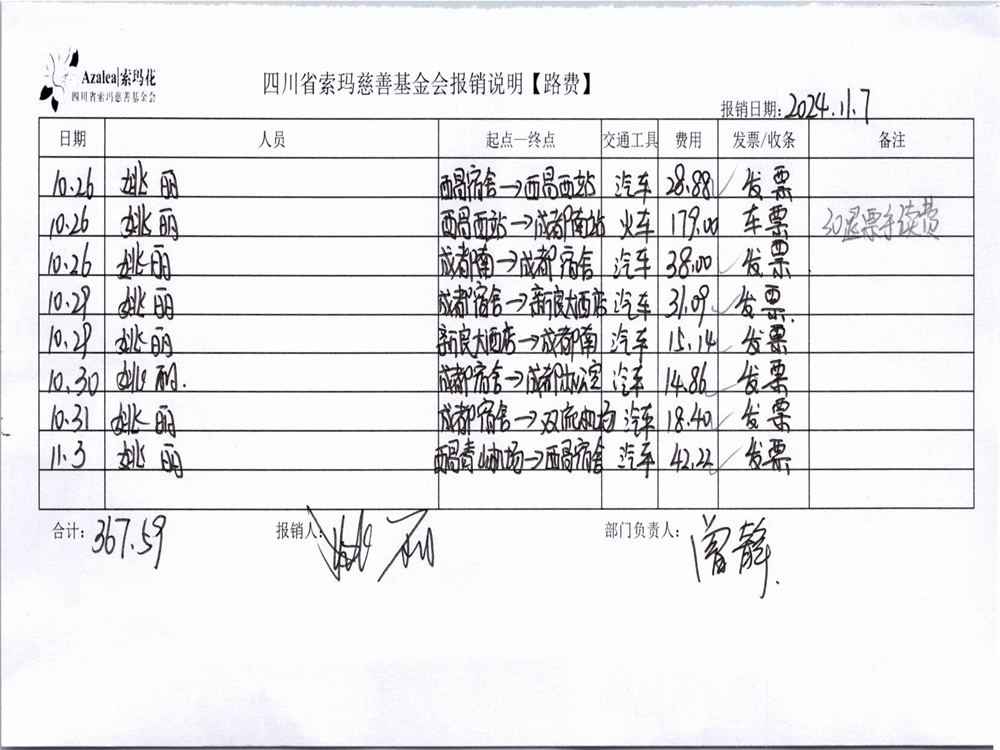 Azalea|索玛花
四川省索玛慈善基金会
四川省索玛慈善基金会报销说明【路费】
报销日期：2024.11.7
日期 人员 起点—终点 交通工具 费用 发票/收条 备注
10.26 姚丽 西昌宿舍→西昌西站 汽车 28.88 发票
10.26 姚丽 西昌西站→成都南站 火车 179.00 车票 30退票手续费
10.26 姚丽 成都南→成都宿舍 汽车 38.00 发票
10.29 姚丽 成都宿舍→新良大酒店 汽车 31.09 发票.
10.29 姚丽 新良大酒店→成都南 汽车 15.14 发票
10.30 姚丽. 成都宿舍→成都办公室 汽车 14.86 发票
10.31 姚丽 成都宿舍→双流机场 汽车 18.40 发票
11.3 姚丽 西昌青山机场→西昌宿舍 汽车 42.22 发票
合计：367.59 报销人：姚丽 部门负责人：曾静.